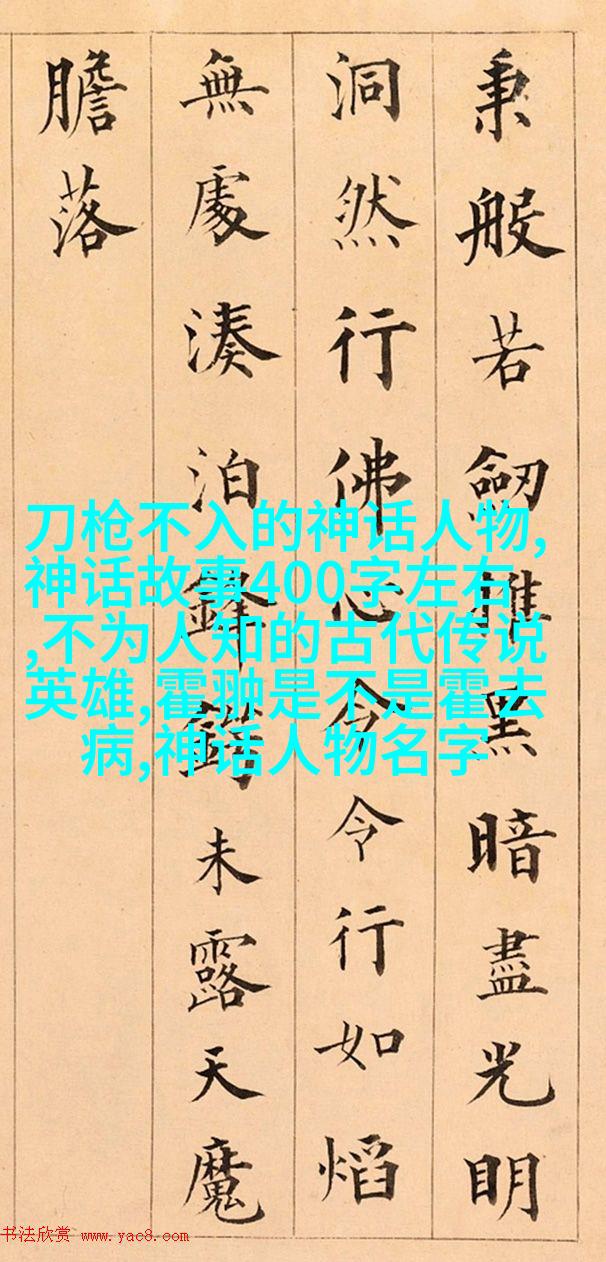 秉般若劒推黑暗盡光明
洞然行佛心令令行如熖
無處湊泊鋒鍔未露天魔
膽落
刀枪不入的神话人物,
神话故事400字左右
,不为人知的古代传说
英雄,霍翀是不是霍去
病,神话人物名字
书法欣赏 www.yac8.com